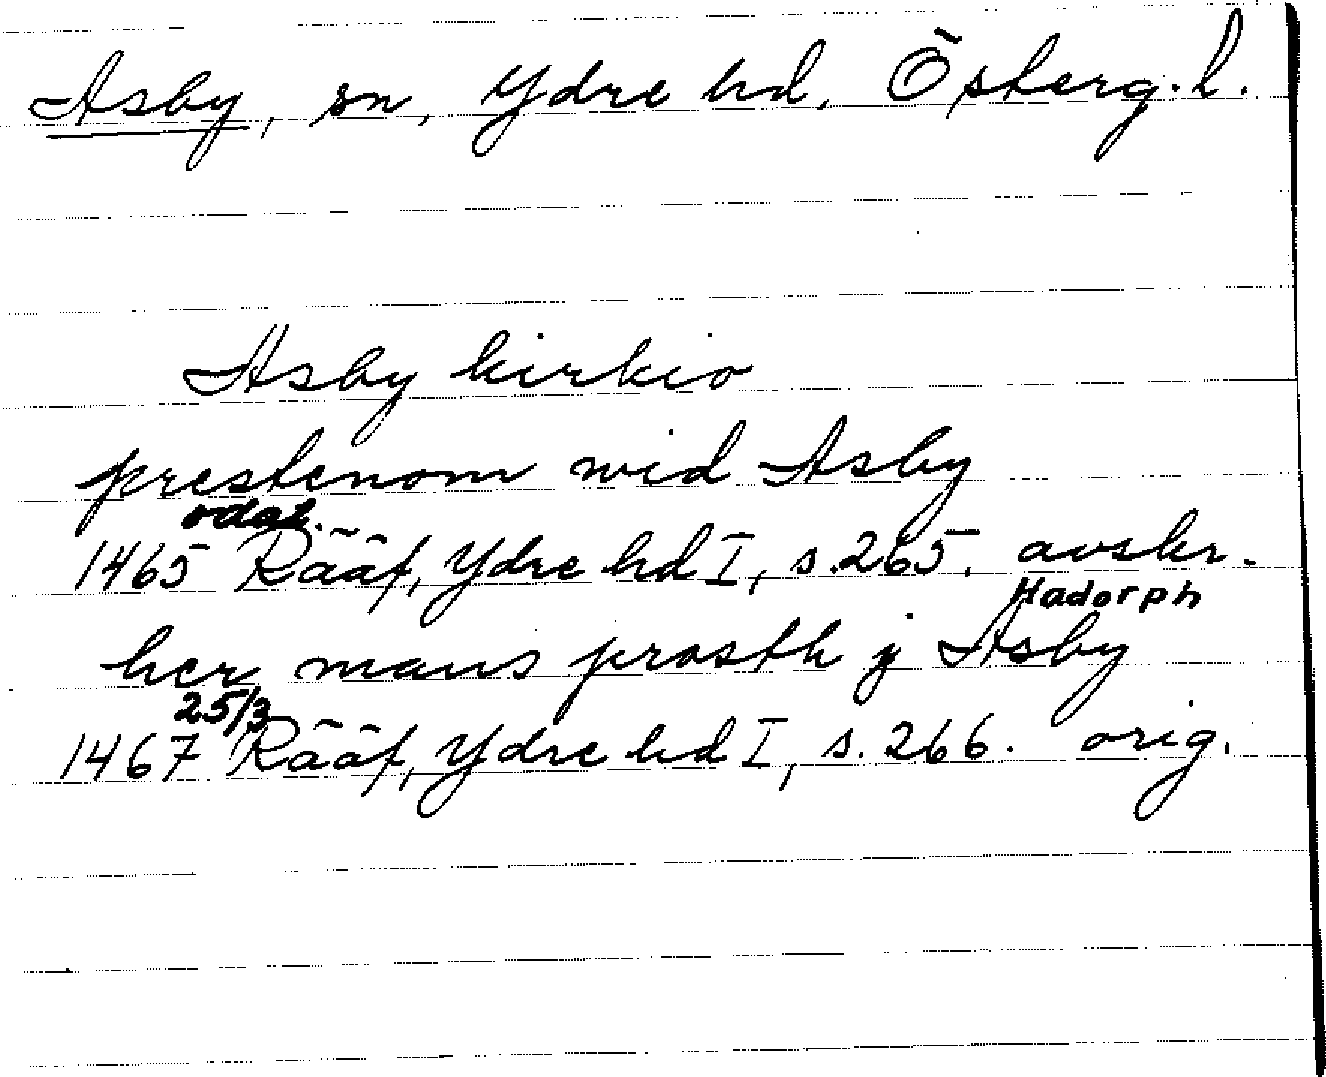 Asby, sn, Ydre hd, Österg. l.
Asby kirkio
prestenom wid Asby
odat.
1465 Rääf, Ydre hd I, s. 265. avskr.
Hadorph
her maus prosth j Asby
25/3
1467 Rääf, Ydre hd I, s. 266. orig.